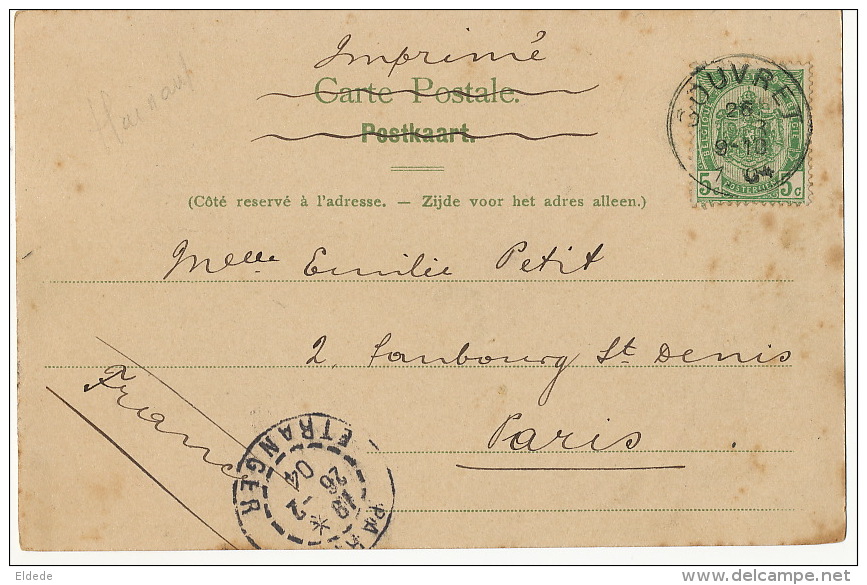 Imprimé
Carte Postale.
Postkaart.
(Côté reservé à l'adresse. — Zijde voor het adres alleen.)
Hainaut
COUVRET
26
9-10
04
5c 5c
POSTERIJEN
Melle Emilie Petit
2, Faubourg St Denis
Paris.
France
ETRANGER
19
26 -2
04
Eldede
delcampe.net